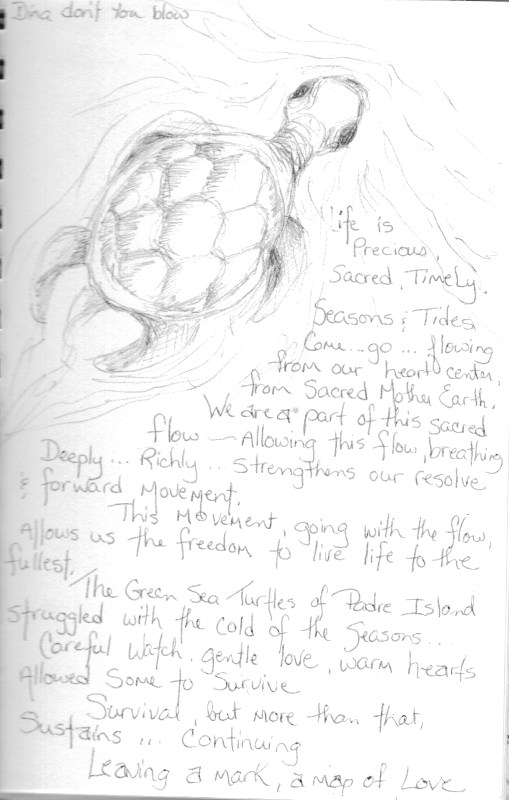 Dina don't You blow
Life is
Precious,
Sacred, Timely.
Seasons & Tides
Come... go ... flowing
from our heart center,
from Sacred Mother Earth.
We are a part of this sacred
flow — Allowing this flow, breathing
Deeply... Richly... strengthens our resolve
& forward Movement.
This Movement, going with the flow,
Allows us the freedom to live life to the
fullest.
The Green Sea Turtles of Padre Island
struggled with the cold of the Seasons...
Careful Watch, gentle love, warm hearts
Allowed Some to Survive
Survival, but more than that,
Sustains ... Continuing
Leaving a mark, a map of Love